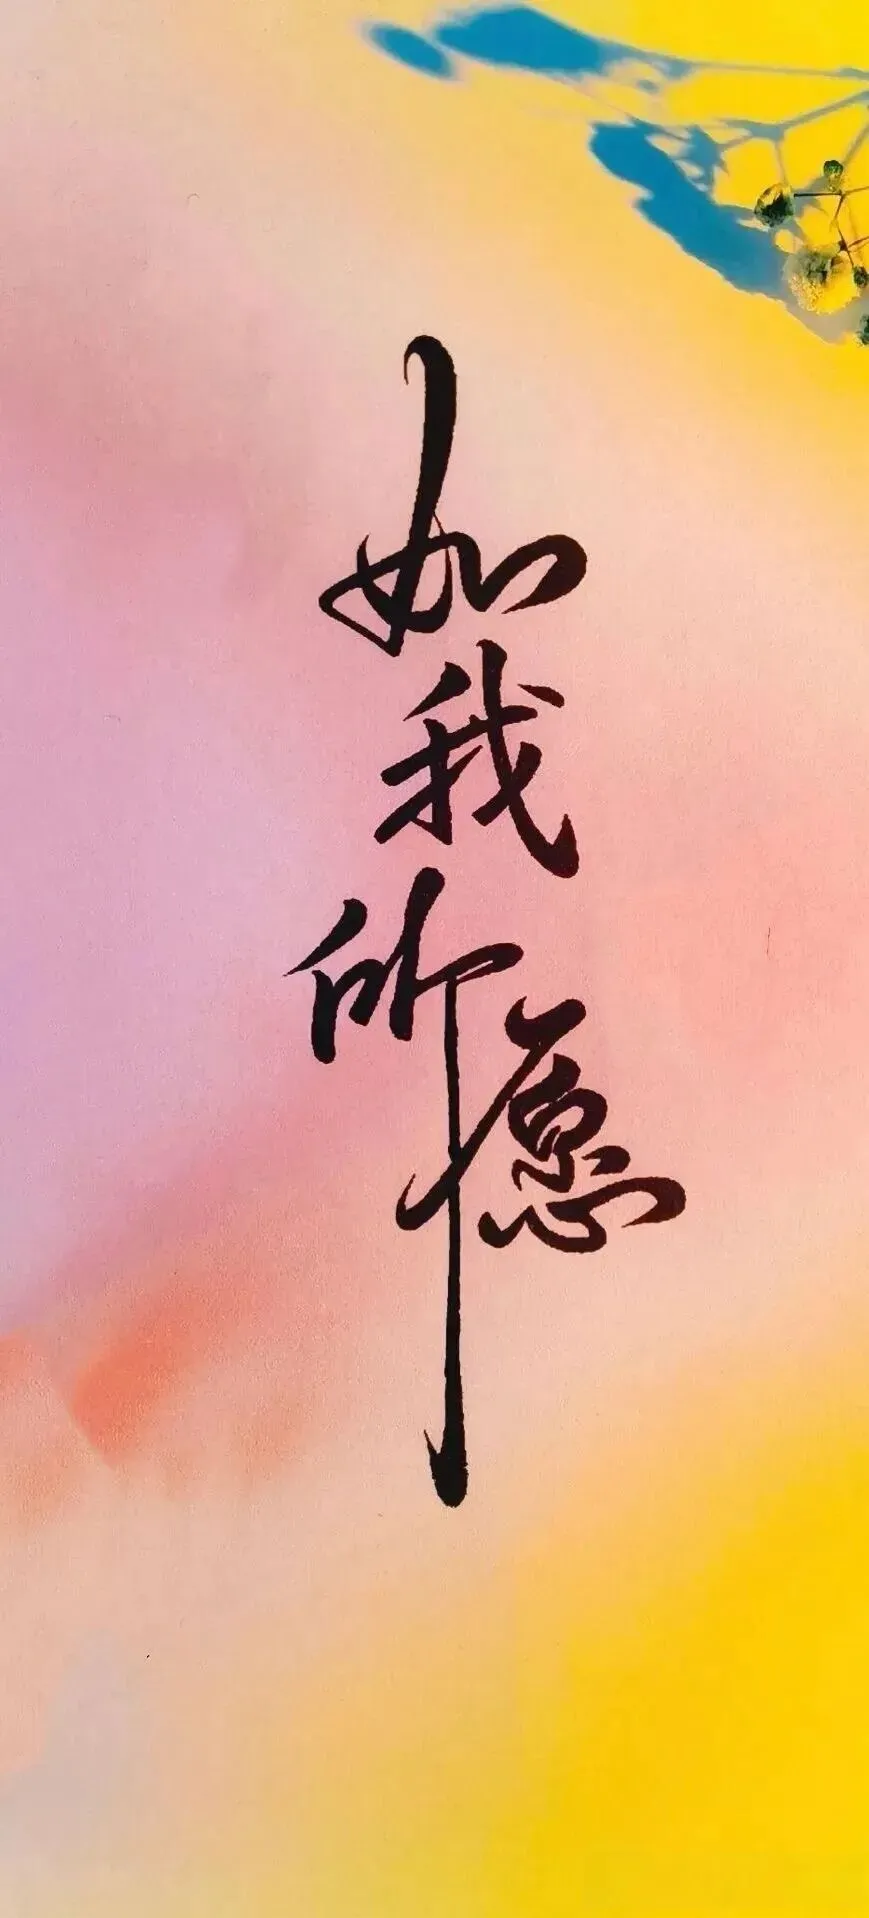 如我所愿